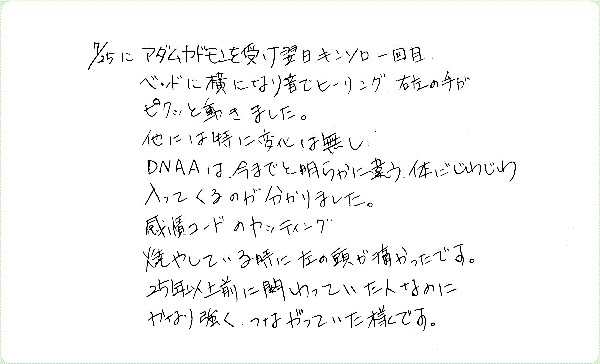 7/25に アダムカドモンを受け翌日キンソロ一回目
ベッドに横になり音でヒーリング 右左の手が
ピクッと動きました。
他には特に変化は無し
DNAAは、今までと明らかに違う、体にじわじわ
入ってくるのが分かりました。
感情コードのカッティング
焼やしている時に左の頭が痛かったです。
25年以上前に関わっていた人なのに
かなり強く、つながっていた様です。